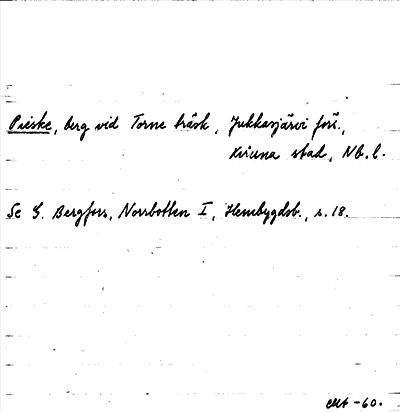 Pieske, berg vid Torne träsk, Jukkasjärvi förs.,
Kiruna stad, Nb. l.
Se G. Bergfors, Norrbotten I, Hembygdsb., s. 18.
-60.